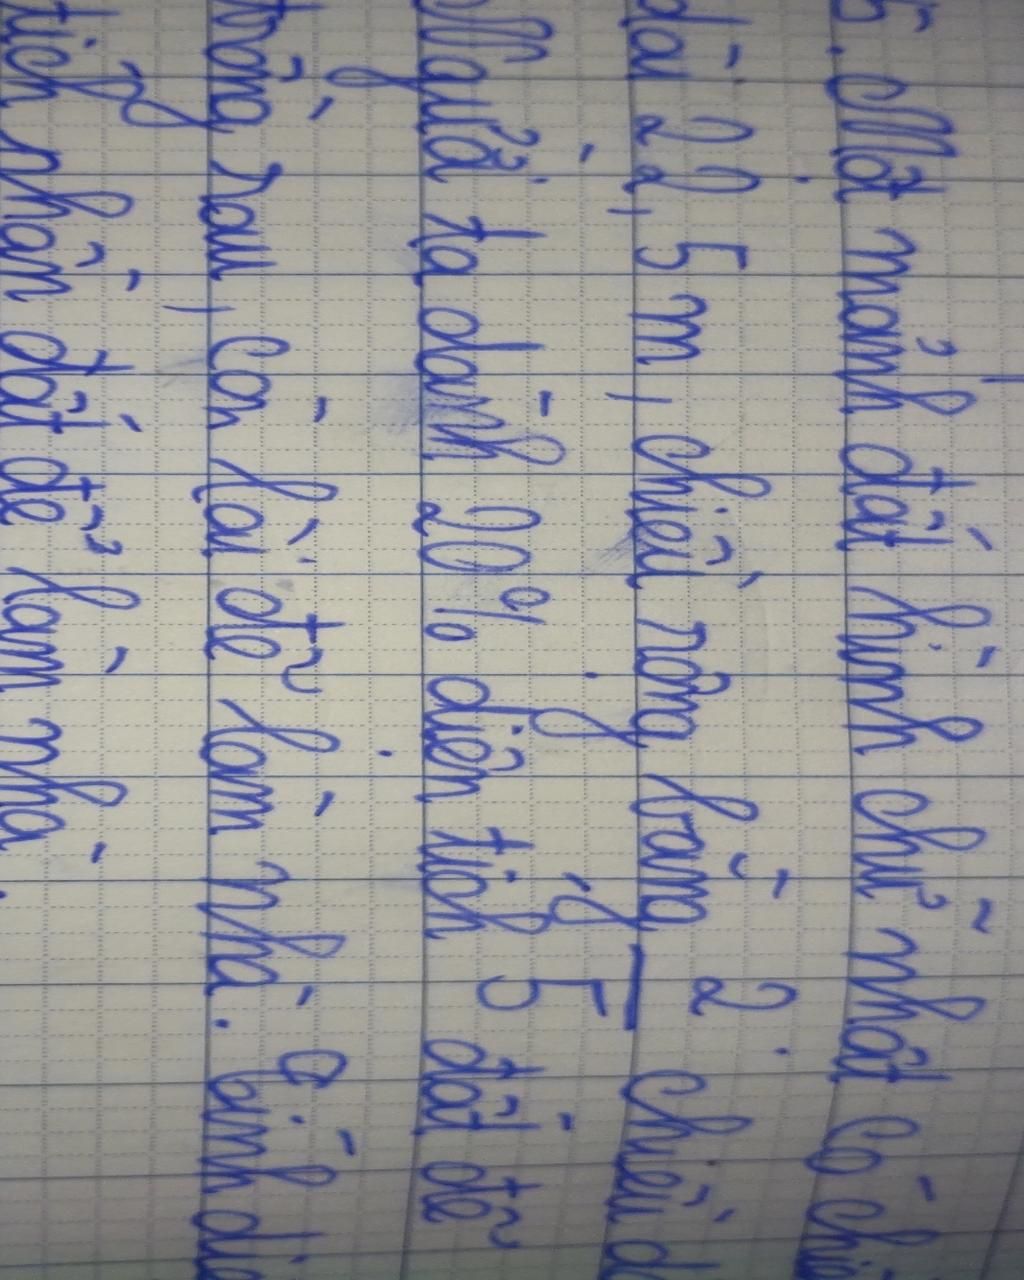 5. Một mảnh đất hình chữ nhật có
dài 22,5 m, chiều rộng bằng 2/5 chiều
Người ta dành 20% diện tích đất để
trồng rau, còn lại để làm nhà. Tính
tích phần đất để làm nhà.